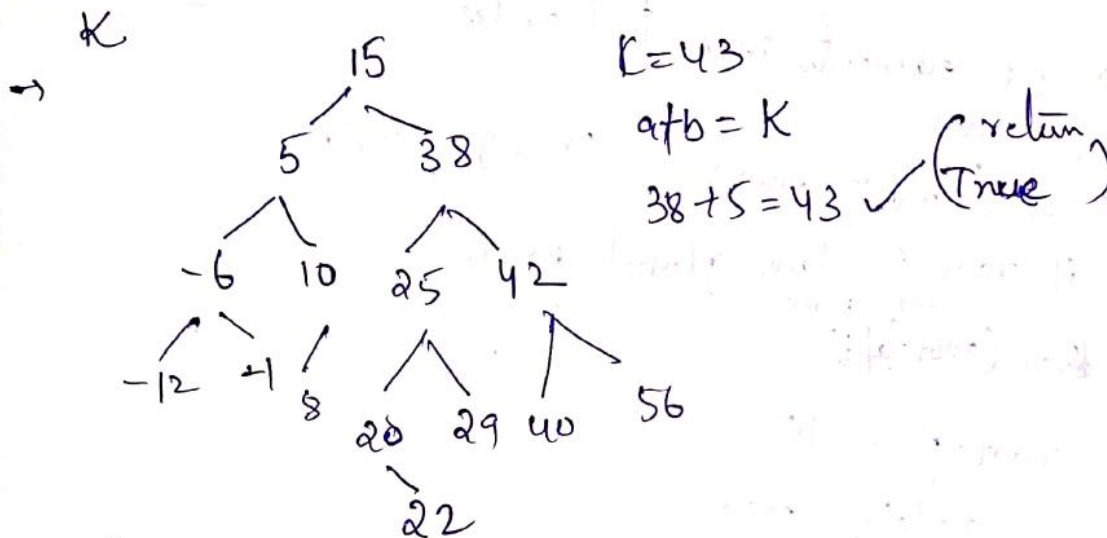 K
15
5 38
-6 10 25 42
-12 -1 8 20 29 40 56
22
K=43
a+b = K
38+5=43 ✓ (return True)